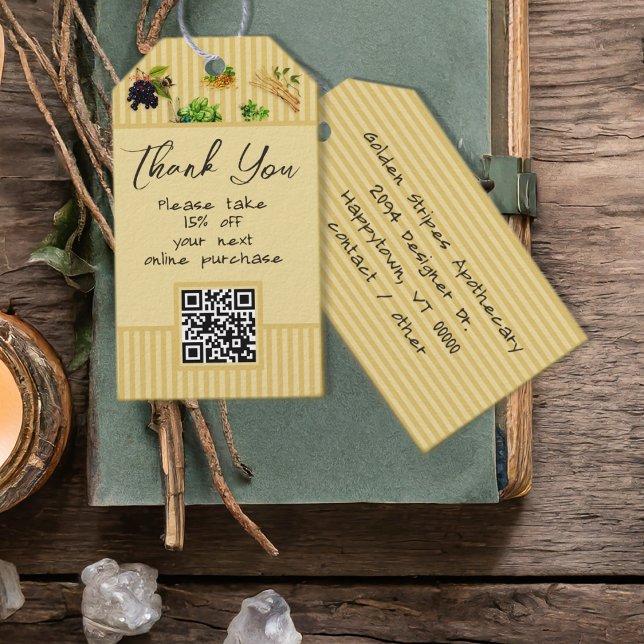 Thank You
Please take
15% off
your next
online purchase
Golden Stripes Apothecary
2094 Designer Dr.
Happytown, VT 00000
contact / other